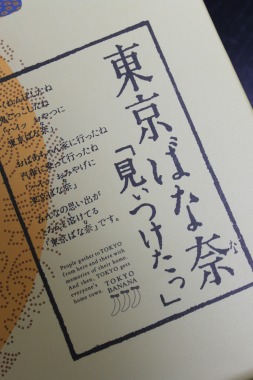 東京ばな奈
な
「見ぃつけたっ」
おばあちゃん家に行ったね
汽車に乗って行ったね
おみやげに
「東京ばな奈」
みんなの思い出が
「東京ばな奈」です。
People gather to TOKYO
from here and there with
memories of their home.
And then, TOKYO gets
everyone's
home town.
TOKYO
BANANA